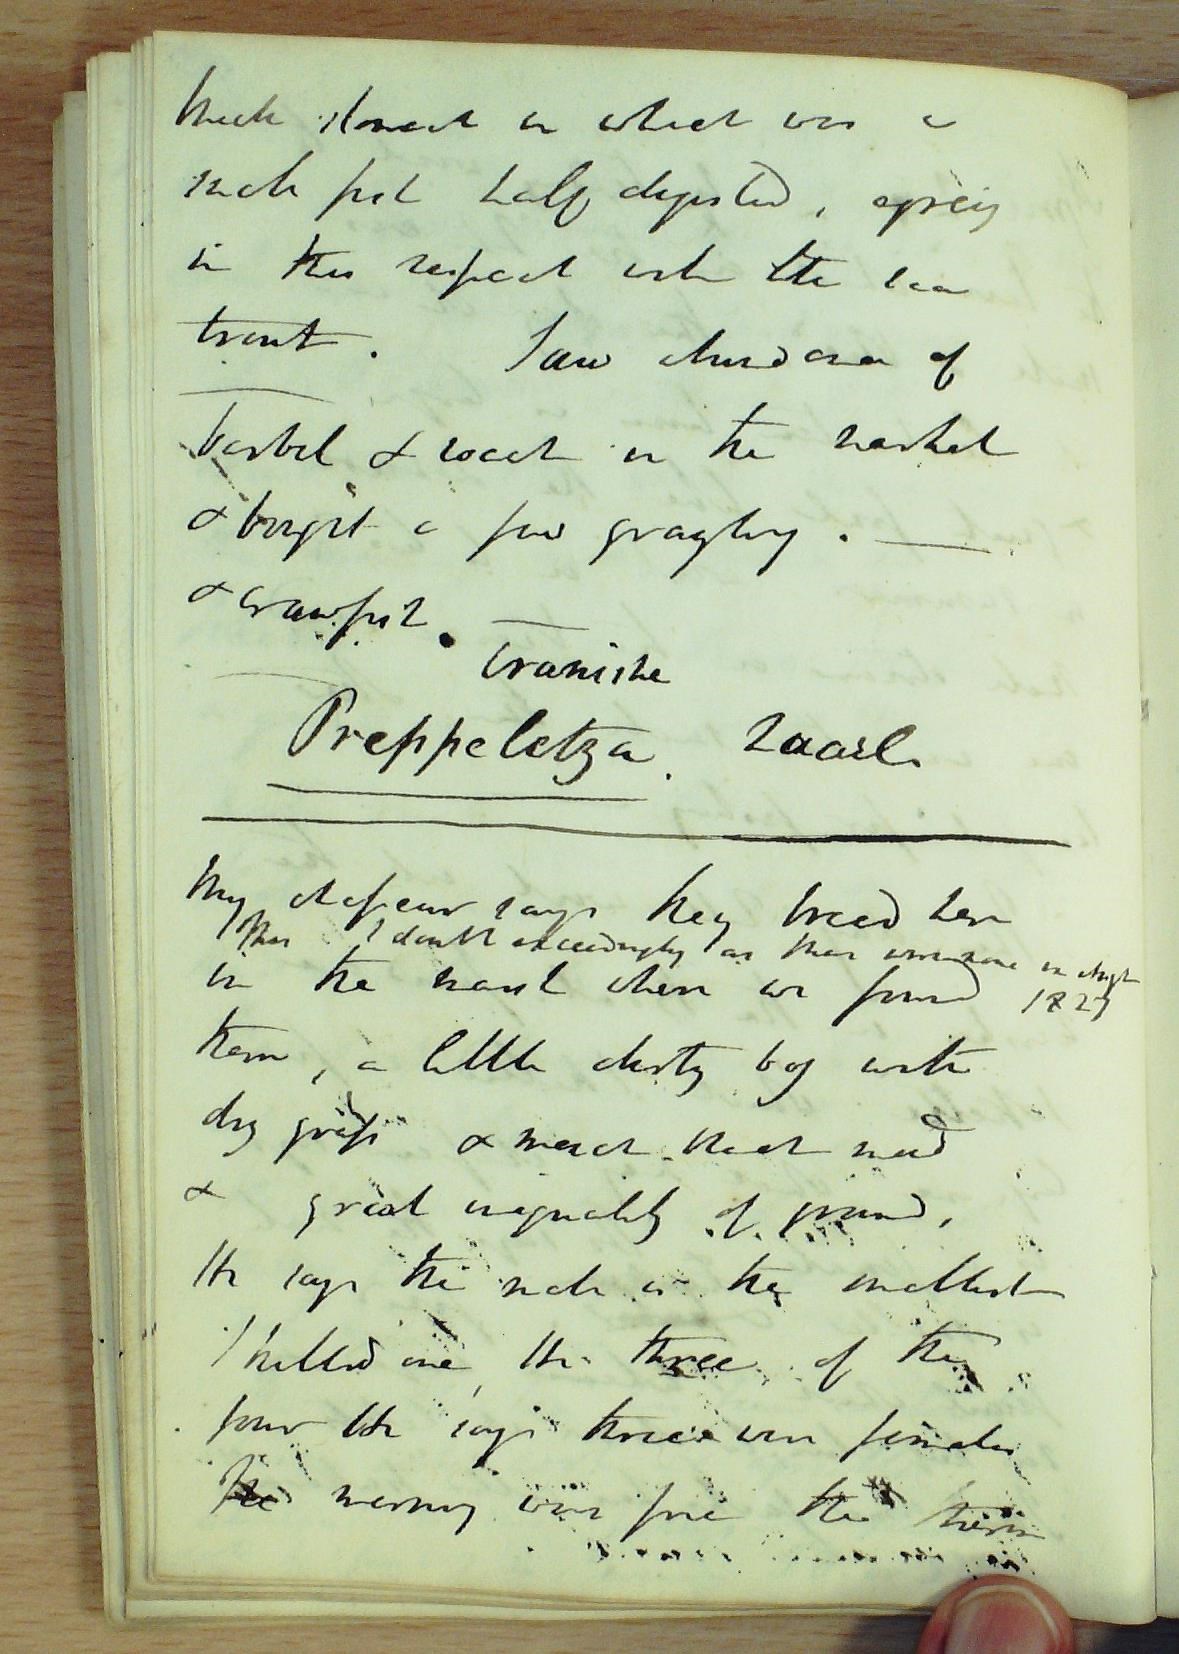 thick stomach in which was a
small fish half digested, agreeing
in this respect with the sea
trout. Saw abundance of
Barbel & roach in the market
& bought a few grayling.
& crawfish.
Craniska
Preppeletza. Laash
My chasseur says they breed here
This I doubt exceedingly as there were none in Augt 1827
in the marsh where we found
them, a little dirty bog with
dry grass & much that mud
& great inequality of ground,
He says the male is the smallest
I killed one, the three of the
four He says three were females
The morning was fine the